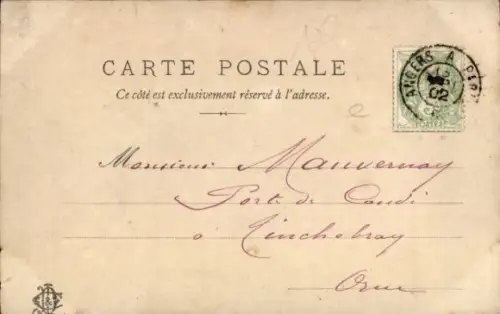 CARTE POSTALE
Ce côté est exclusivement réservé à l'adresse.
ANGERS A PARI
02
Monsieur Mauvernay
Porte de Condé
à Tinchebray
Orne